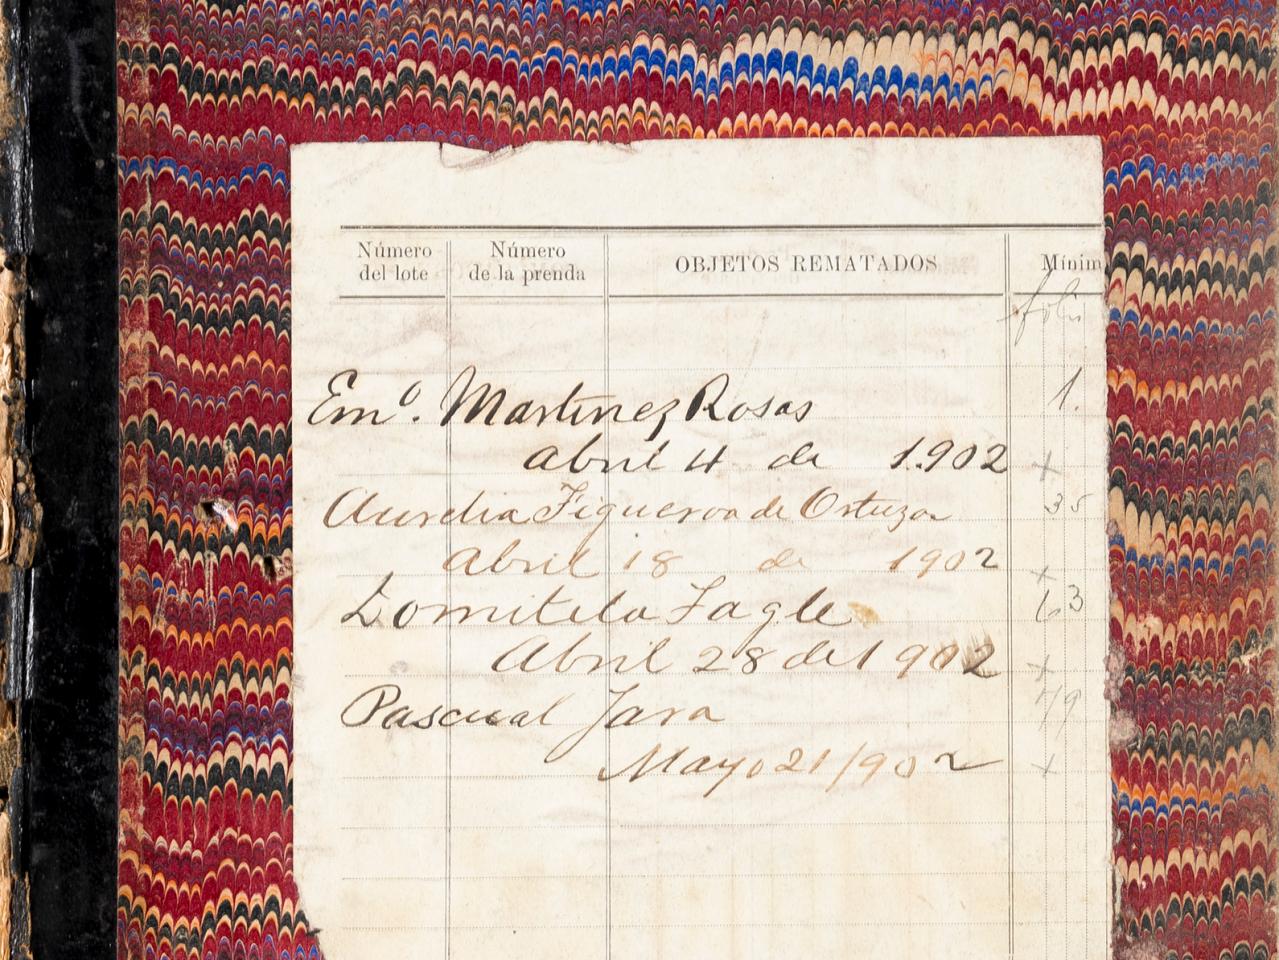 Número del lote
Número de la prenda
OBJETOS REMATADOS
Mínim
folio
Emº. Martinez Rosas 1.
Abril 4 de 1.902 +
Aurelia Figueroa de Ortuzar 35
Abril 18 de 1902 +
Domitila Tagle 63
Abril 28 de 1902 +
Pascual Jara 119
Mayo 21/902 +